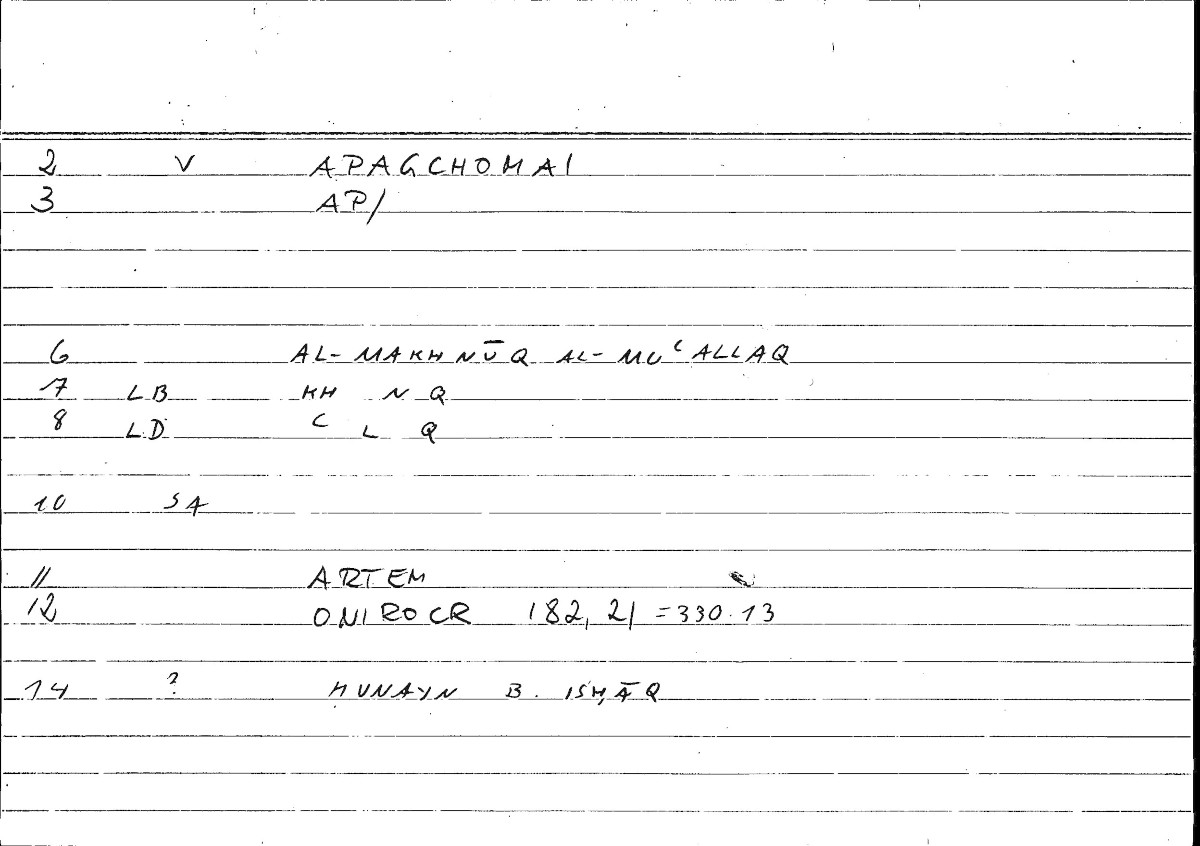 2 V APAGCHOMAI
3 AP/
6 AL- MAKHNŪQ AL- MUʿALLAQ
7 LB KH N Q
8 LD ʿ L Q
10 SA
11 ARTEM
12 ONIROCR 182, 21 = 330.13
14 ? ḤUNAYN B. ISḤĀQ